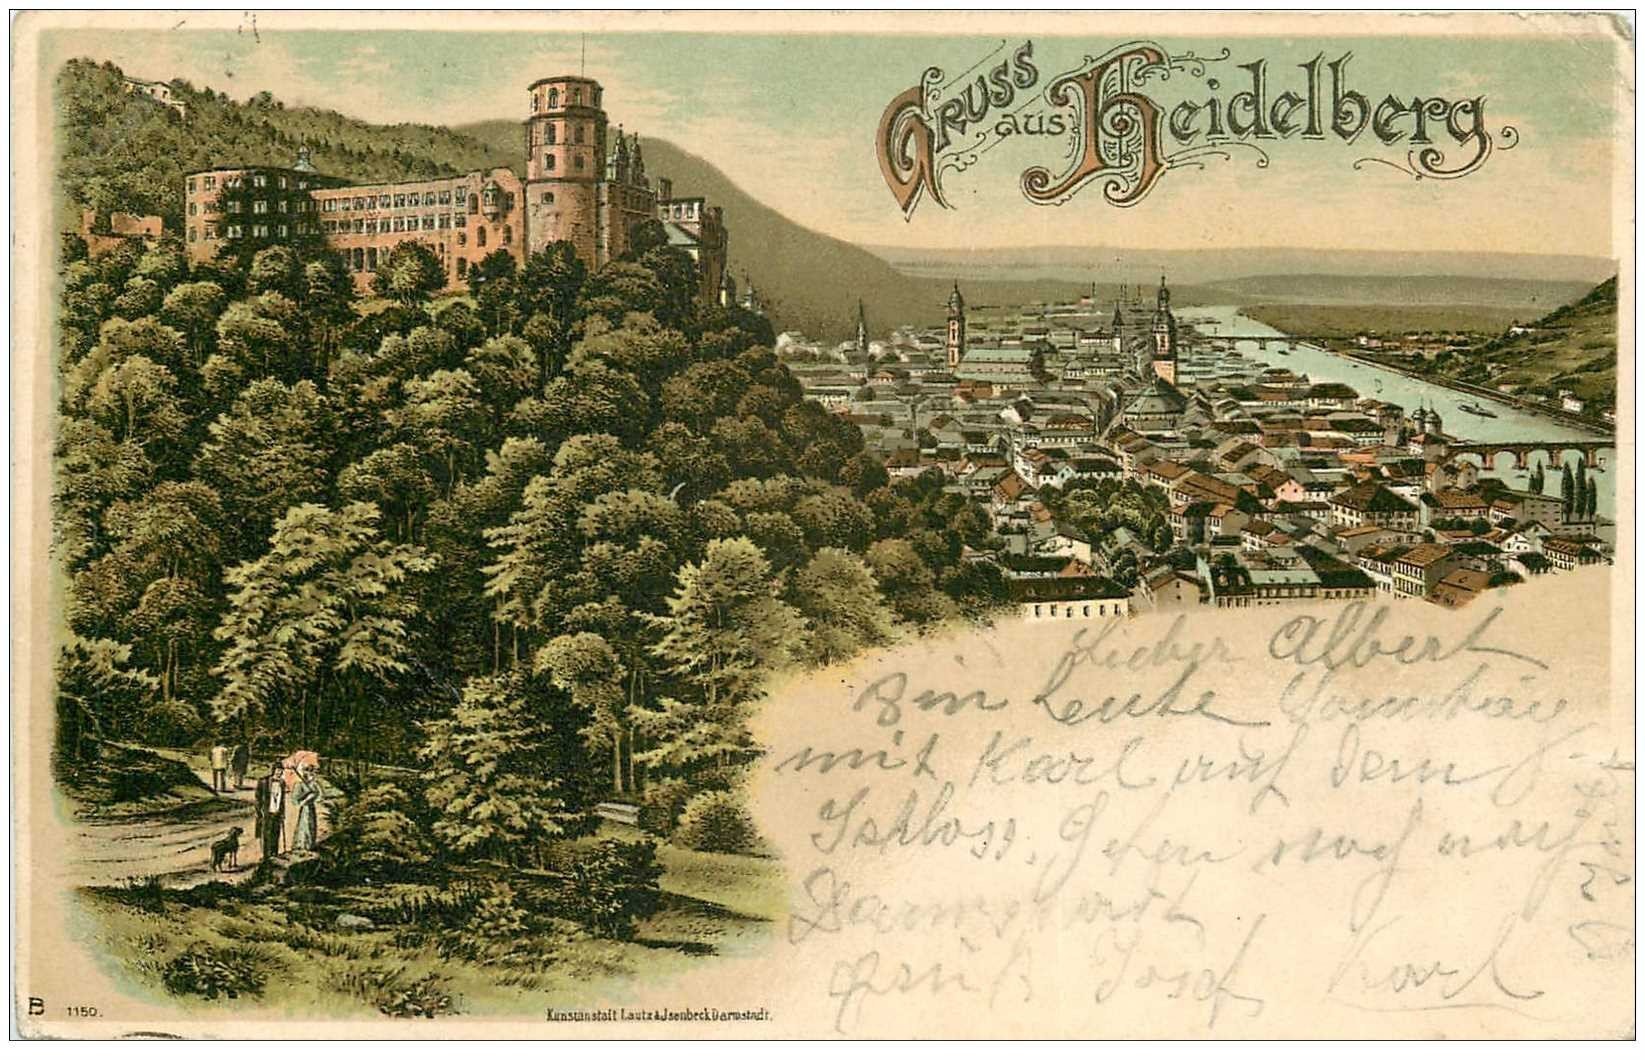 Gruss
aus Heidelberg
Lieber Albert
Bin heute
mit Karl auf dem
Schloss. Gehen noch nach
Darmstadt
Gruß Josef Karl
B 1150.
Kunstanstalt Lautz & Jsenbeck Darmstadt.